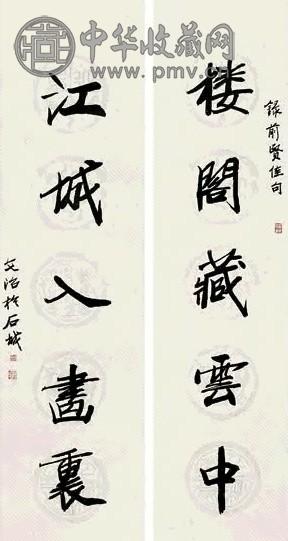 中华收藏网
www.pmv.cn
錄前賢佳句
楼閣藏雲中
江城入畵裏
文治於石城